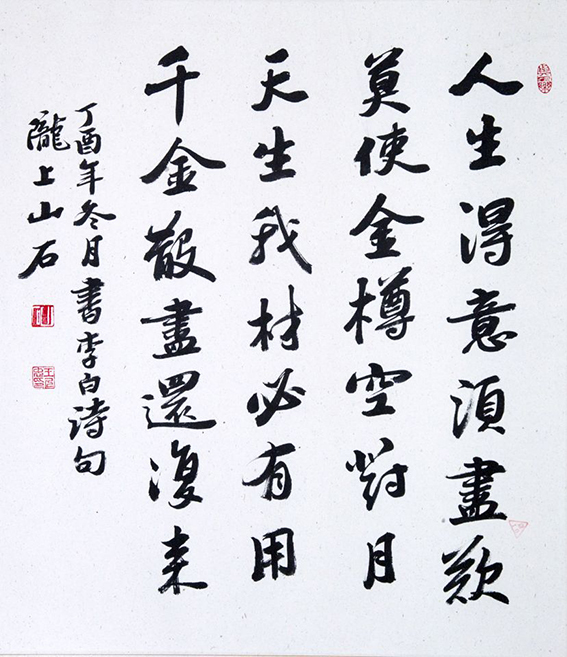 人生得意须盡歡
莫使金樽空對月
天生我材必有用
千金散盡還復来
丁酉年冬月書李白诗句
隴上山石